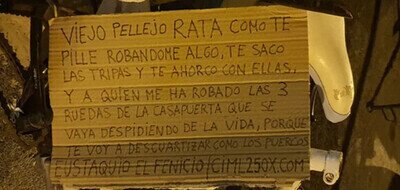 VIEJO PELLEJO RATA COMO TE
PILLE ROBANDOME ALGO, TE SACO
LAS TRIPAS Y TE AHORCO CON ELLAS,
Y A QUIEN ME HA ROBADO LAS 3
RUEDAS DE LA CASAPUERTA QUE SE
VAYA DESPIDIENDO DE LA VIDA, PORQUE
TE VOY A DESCUARTIZAR COMO LOS PUERCOS
EUSTAQUIO EL FENICIO/CIML250X.COM